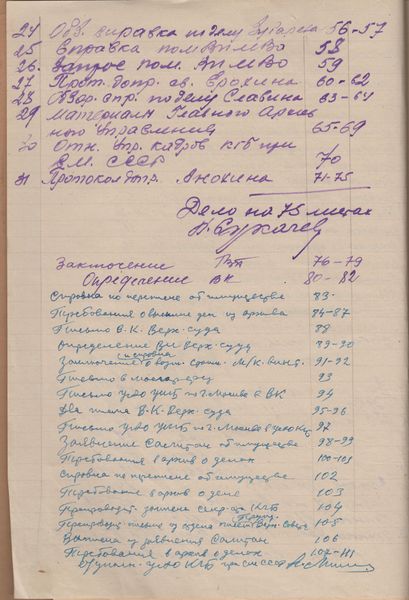 24 Обз. справка по делу Зубарева 56-57
25 Справка пом АПМВО 58
26. Запрос пом. АПМВО 59
27 Прот. допр. св. Ерохина 60-62
28 Обзор. спр. по делу Славина 63-64
29 Материалы Главного Архив
ного Управления 65-69
30 Отн. Упр. кадров КГБ при
СМ. СССР 70
31 Протокол допр. Анохина 71-75
Дело на 75 листах
П. Сухачев
Заключение ГВП 76-79
Определение ВК 80-82
Справка по переписке об имуществе 83-
Требования о высылке дел из архива 84-87
Письмо В.К. Верх. суда 88
Определение ВК Верх. суда 89-90
и справка
Заключение о 91-92
Письмо в 93
Письмо УКГБ по г. Москве в ВК 94
Два письма В.К. Верх. суда 95-96
Письмо УКГБ по г. Москве 97
Заявление об имуществе 98-99
Требования в архив о делах 100-101
Справка по переписке об имуществе 102
Требование в архив о деле 103
КГБ 104
письмо из отдела Верх. Совета 105
Выписка из заявления 106
Требования в архив о делах 107-111
КГБ при СМ СССР